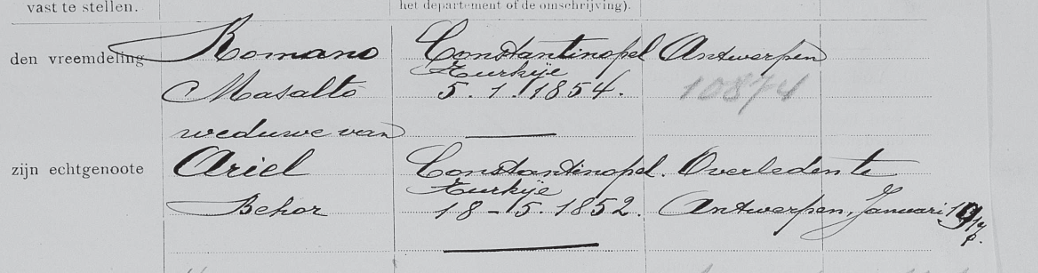 vast te stellen.
het departement of de omschrijving).
den vreemdeling Romano Constantinopel Antwerpen
Turkije
Masalto 5. 1. 1854. 10874
weduwe van
zijn echtgenoote Ariel Constantinopel. Overleden te
Turkije
Behor 18-5. 1852. Antwerpen, Januari